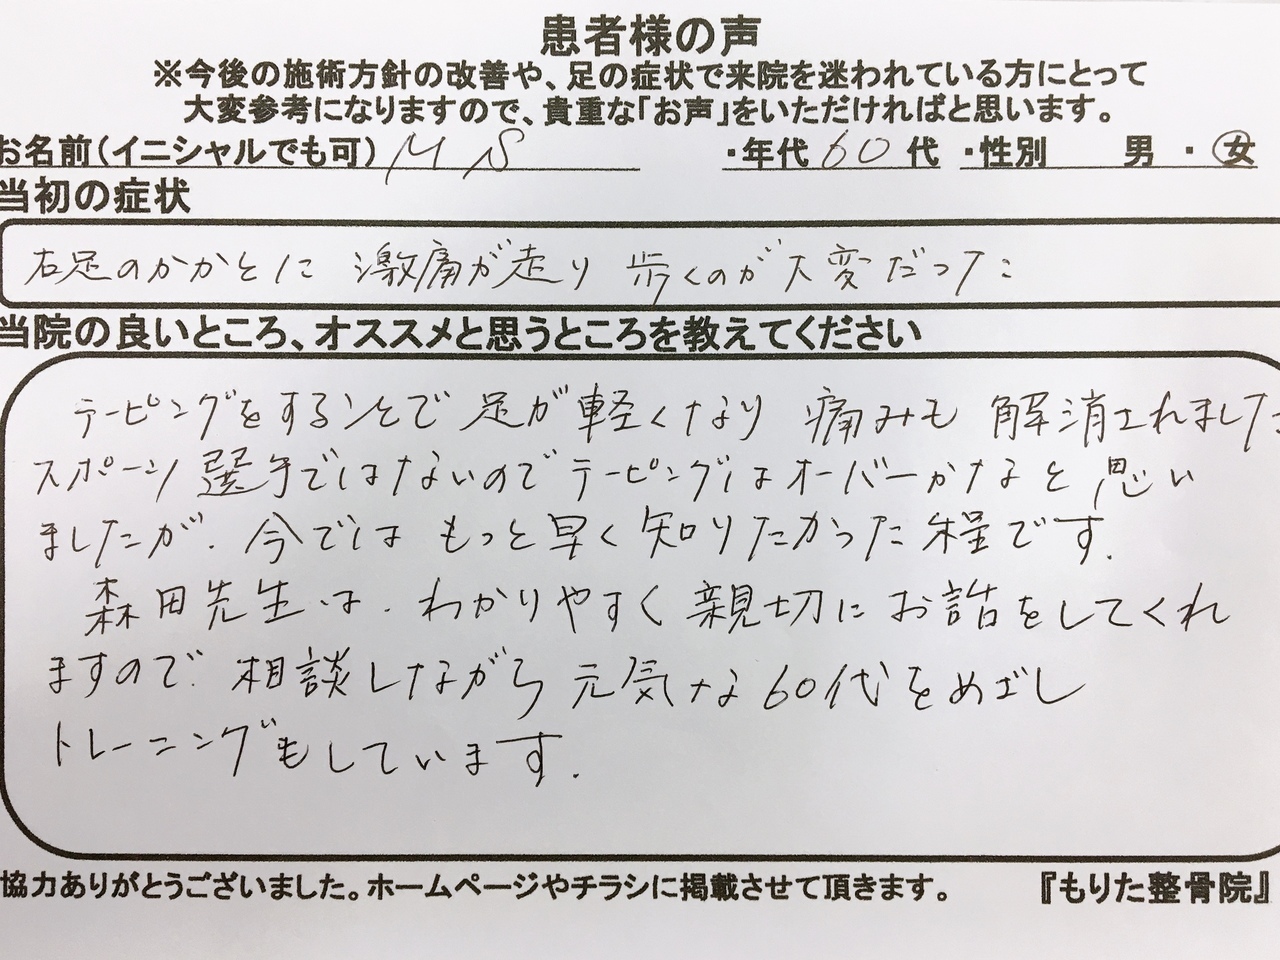 患者様の声
※今後の施術方針の改善や、足の症状で来院を迷われている方にとって
大変参考になりますので、貴重な「お声」をいただければと思います。
お名前(イニシャルでも可) M S ・年代 60 代 ・性別 男 ・ 女
当初の症状
右足のかかとに 激痛が走り 歩くのが大変だった
当院の良いところ、オススメと思うところを教えてください
テーピングをすることで 足が軽くなり 痛みも 解消されました
スポーツ選手ではないのでテーピングはオーバーかなと思い
ましたが、今では もっと早く知りたかった程です.
森田先生は、わかりやすく親切にお話をしてくれ
ますので、相談しながら 元気な60代をめざし
トレーニングもしています.
協力ありがとうございました。ホームページやチラシに掲載させて頂きます。 『もりた整骨院』